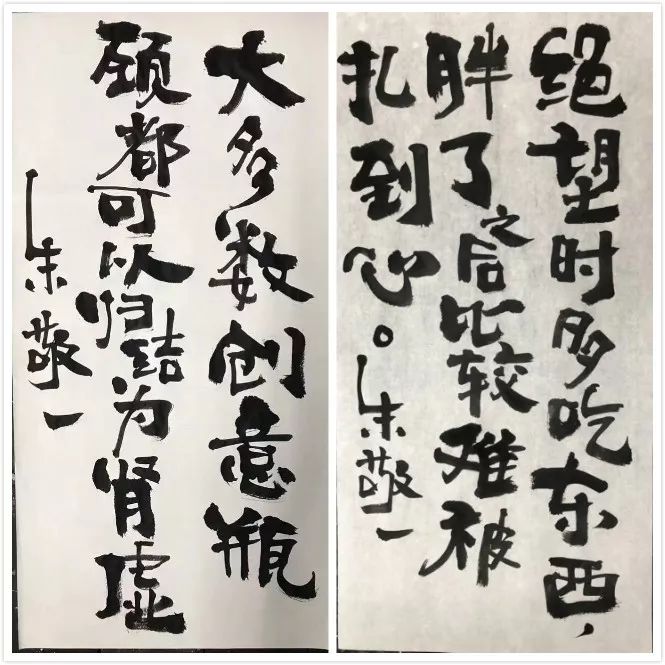 大多数创意瓶
颈都可以归结为肾虚
朱敬一
绝望时多吃东西，
胖了之后比较难被
扎到心。朱敬一